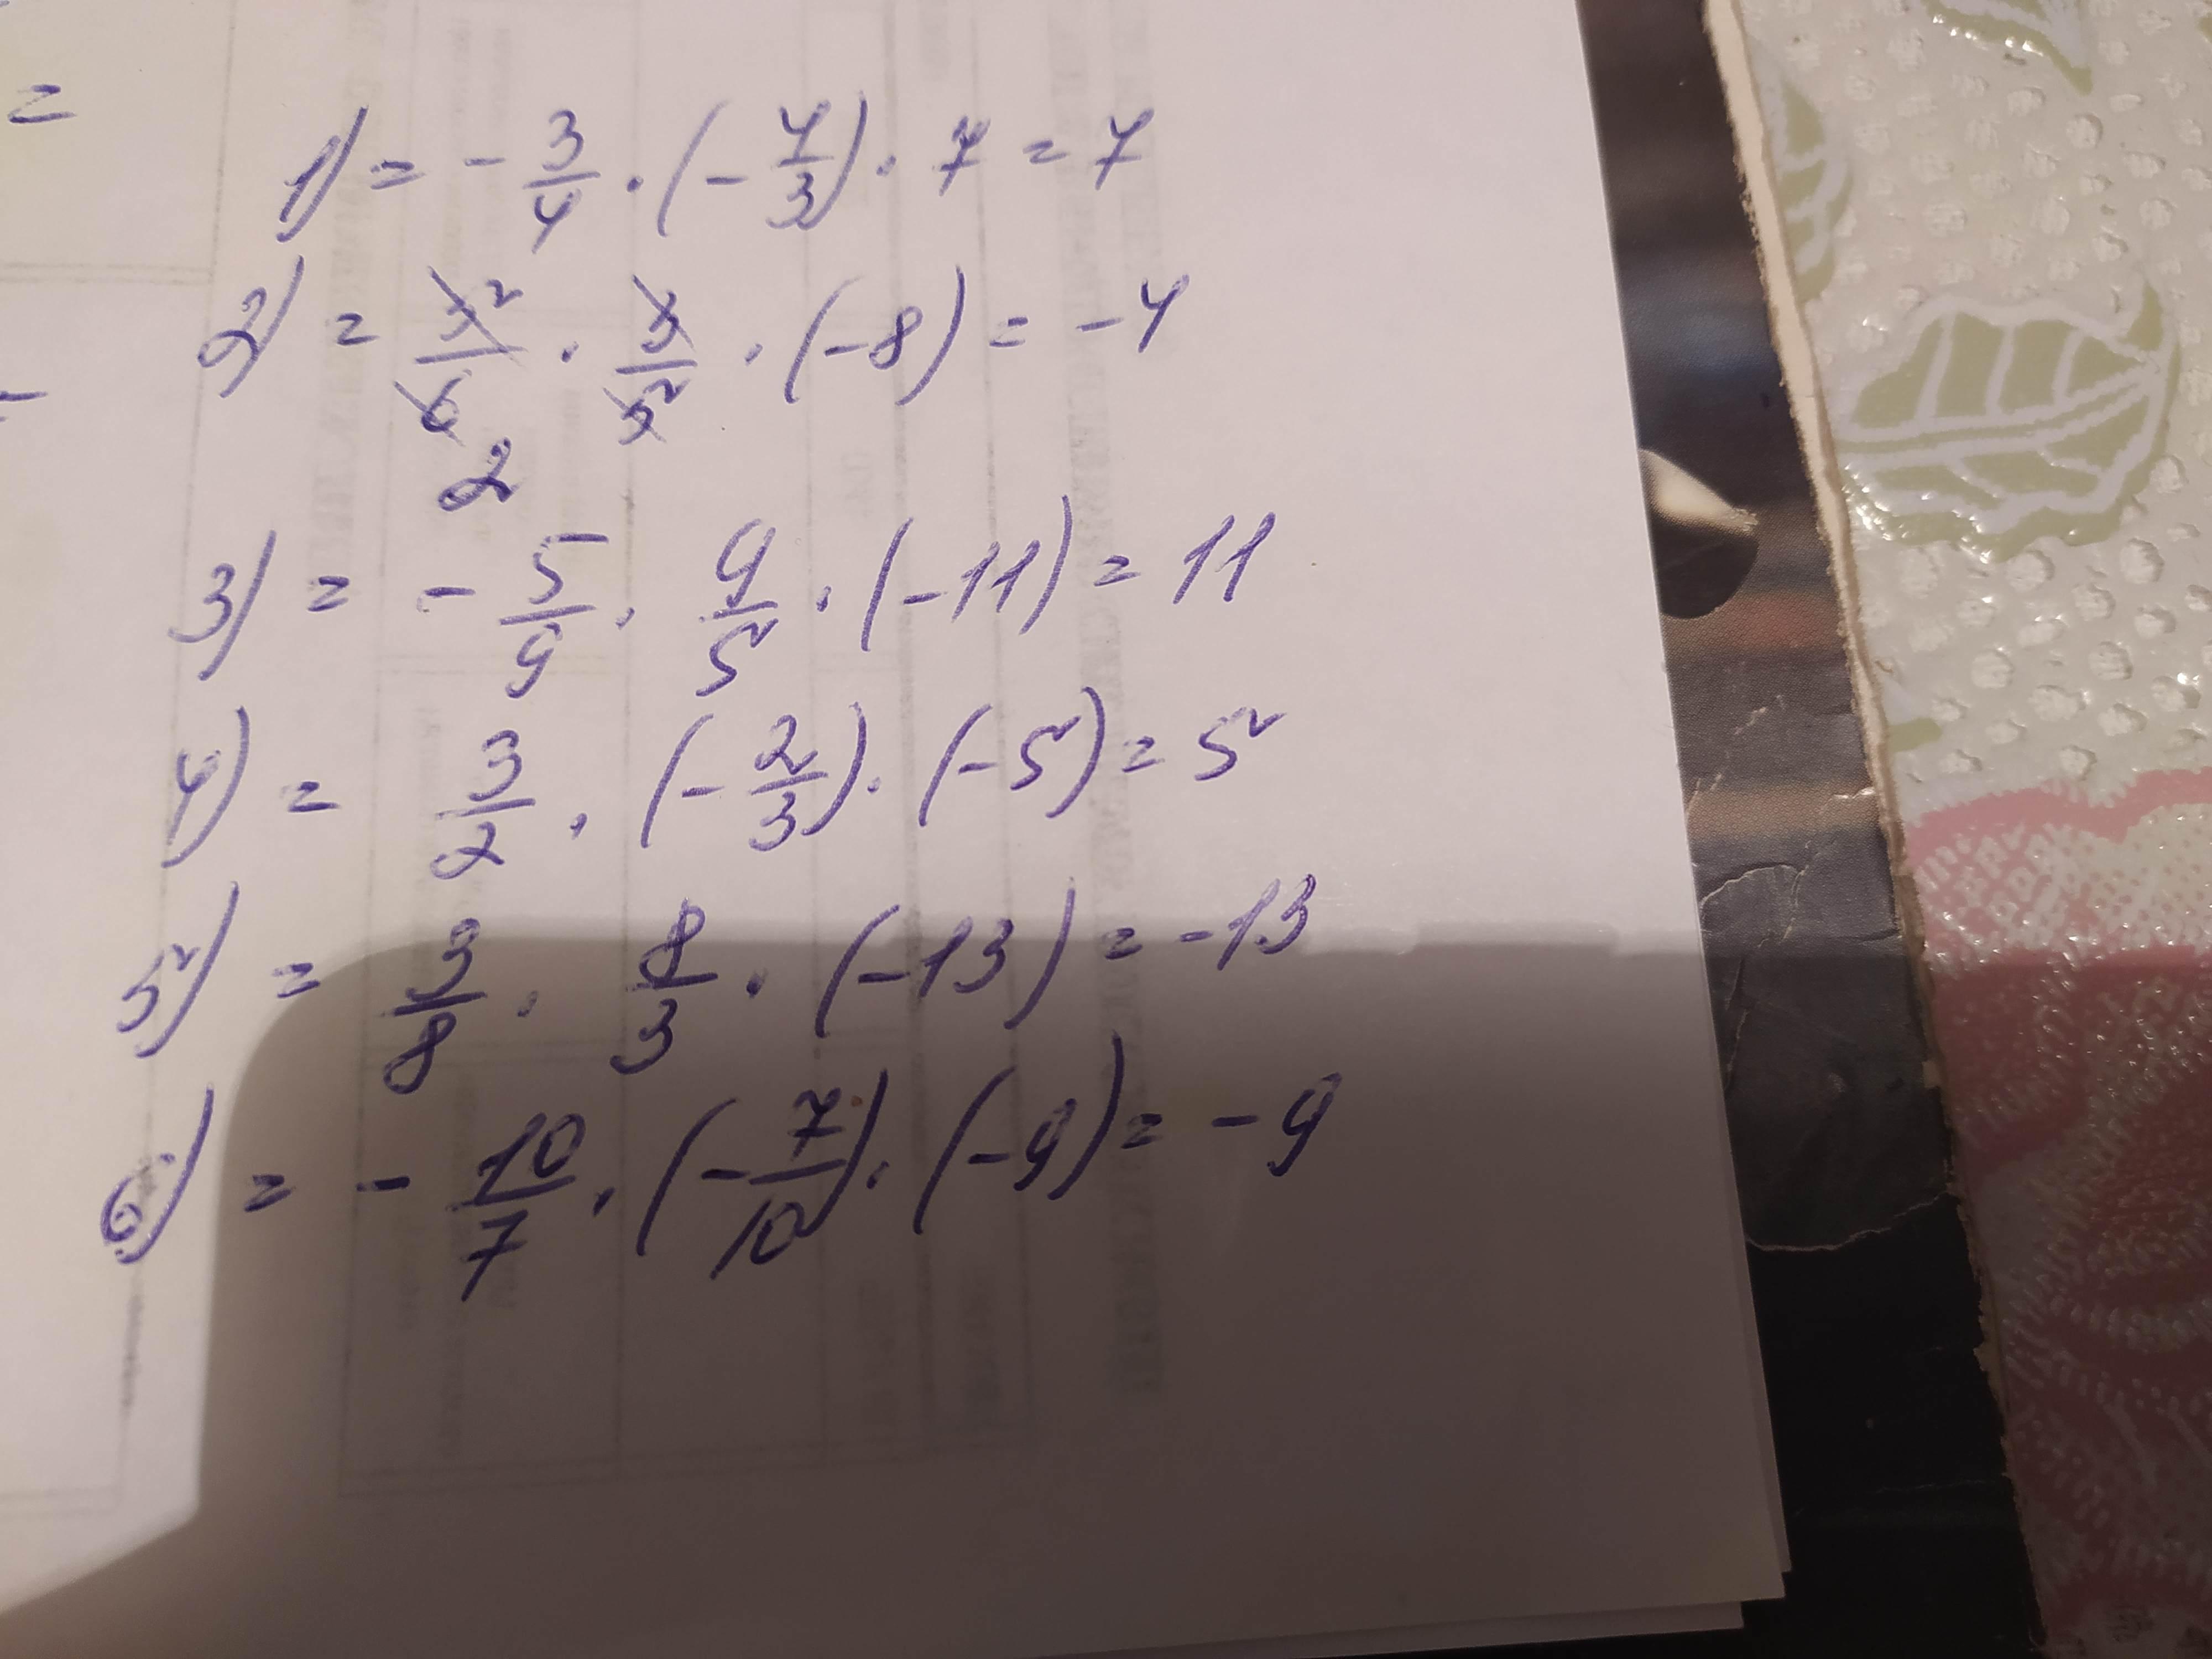 =
1) = - 3/4 · (- 4/3) · 7 = 7
2) = 5/6 · 3/5 · (-8) = -4
2
3) = - 5/9 · 9/5 · (-11) = 11
4) = 3/2 · (- 2/3) · (-5) = 5
5) = 3/8 · 8/3 · (-13) = -13
6) = - 10/7 · (- 7/10) · (-9) = -9